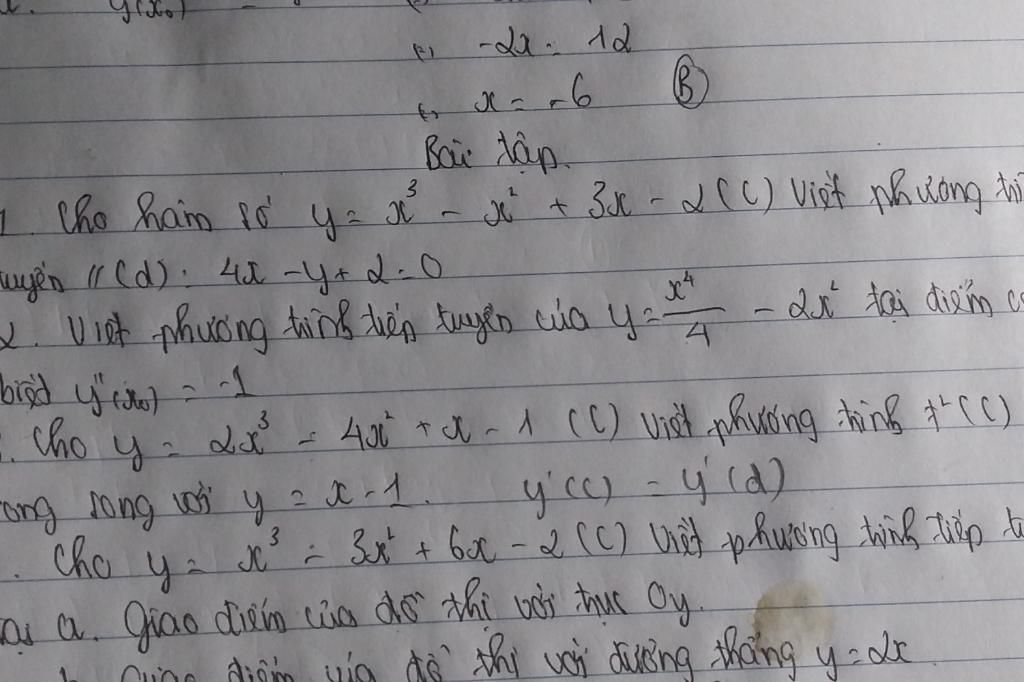 y(x₀)
-2x = 12
x = -6 (B)
Bài tập.
1. Cho hàm số y = x³ - x² + 3x - 2 (C) Viết phương
tuyến // (d): 4x - y + 2 = 0
2. Viết phương trình tiếp tuyến của y = x⁴/4 - 2x² tại điểm
biết y''(x₀) = -1
Cho y = 2x³ - 4x² + x - 1 (C) Viết phương trình t² (C)
song song với y = x - 1. y'(C) = y'(d)
Cho y = x³ - 3x² + 6x - 2 (C) Viết phương trình tiếp
tại a. Giao điểm của đồ thị với trục Oy.
Giao điểm của đồ thị với đường thẳng y = 2x